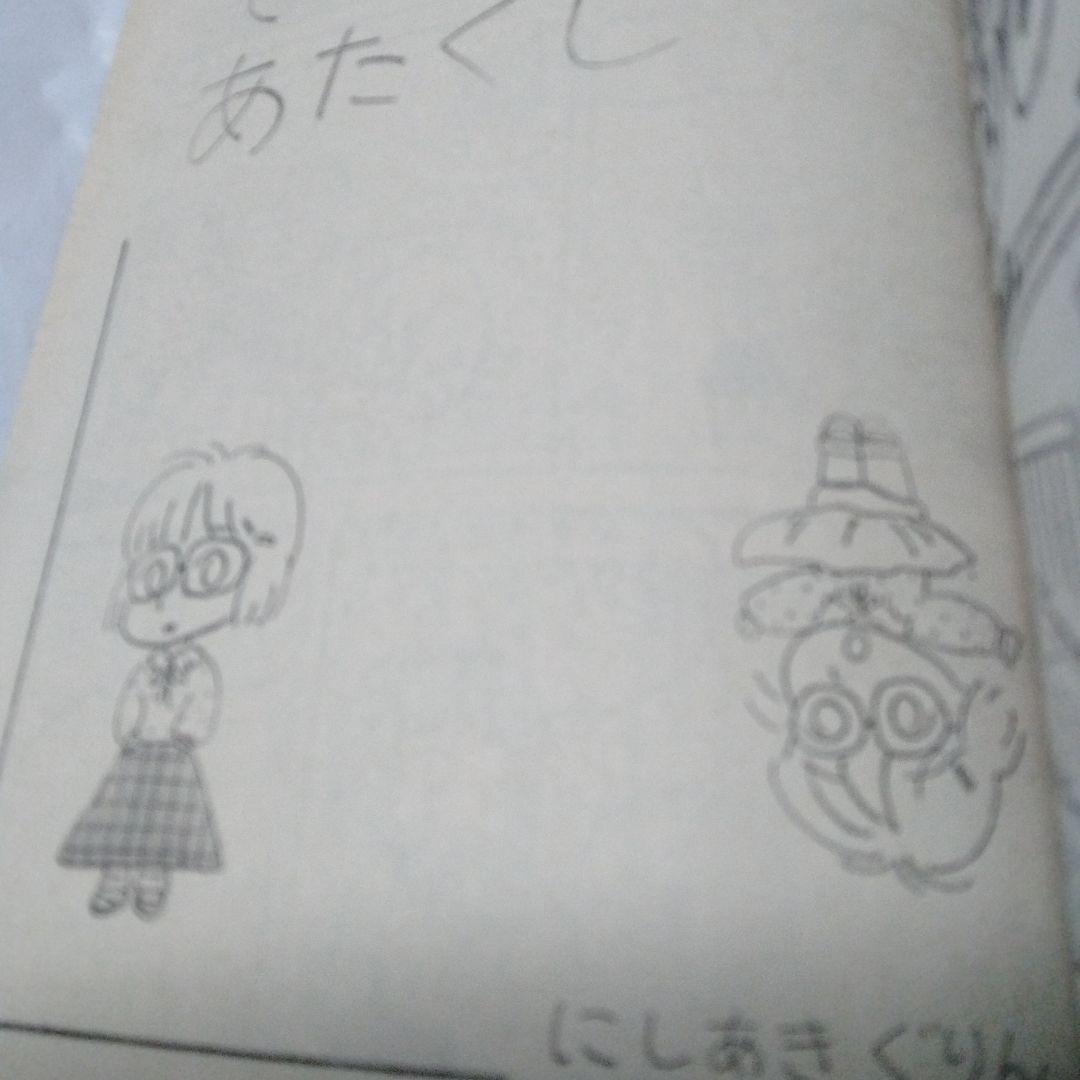 あたくし
にしあきぐりん